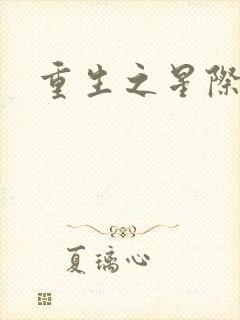 重生之星際
夏璃心